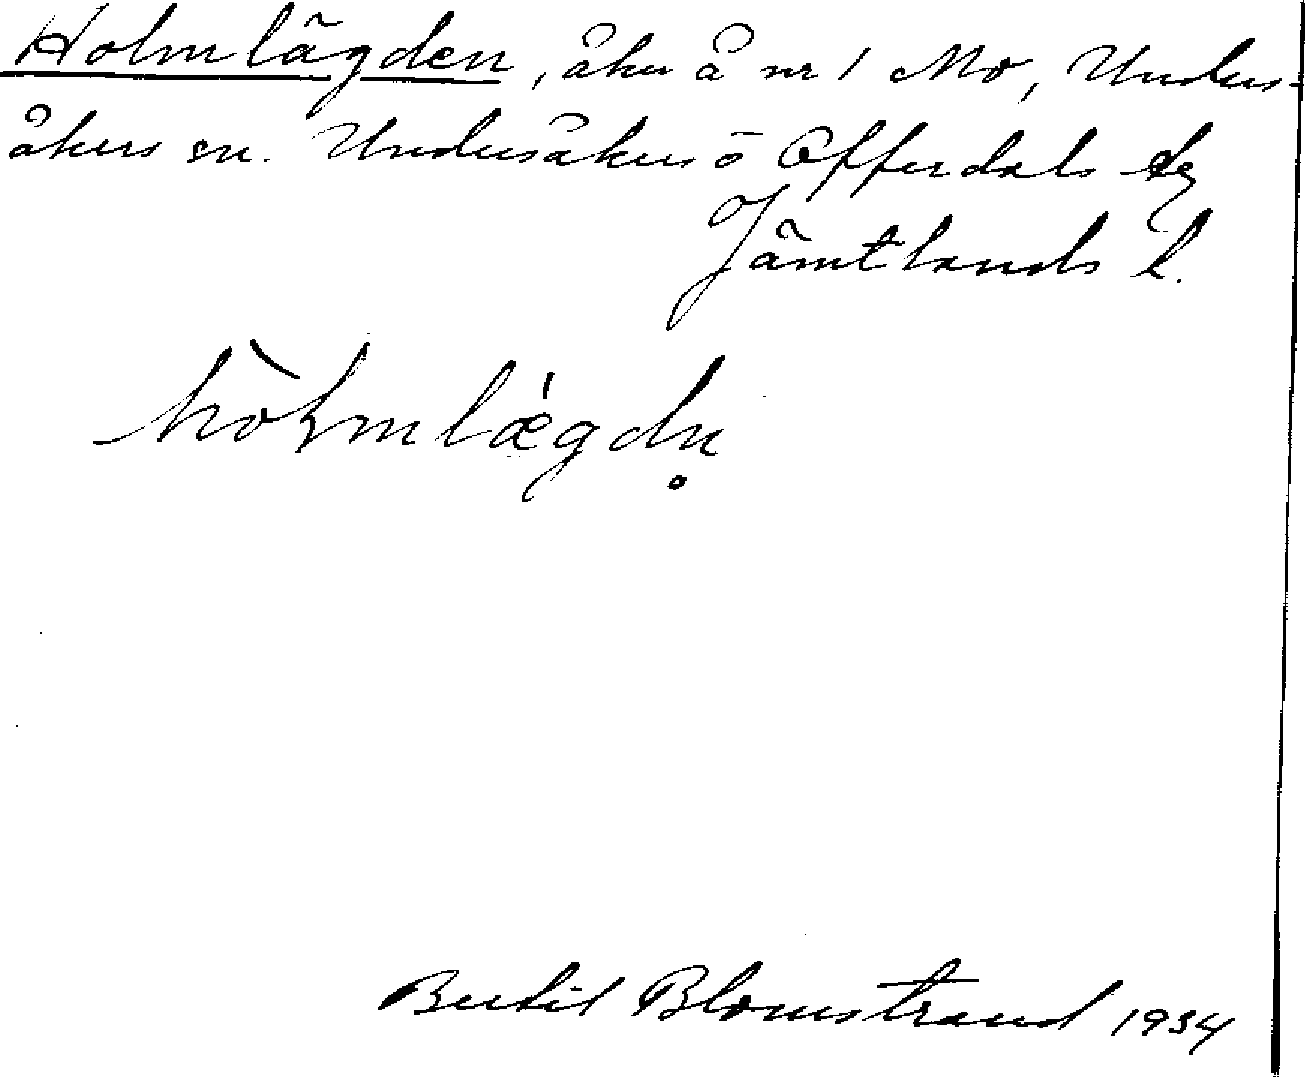 Holmlägden, åker å nr 1 Mo, Unders-
åkers sn. Undersåkers o Offerdals tg
Jämtlands l.
hòłmlǽgdn̥
Bertil Blomstrand 1934